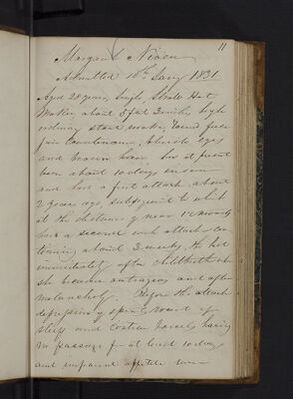 11
Margaret Nixon
Admitted 10th Jany 1831
Aged 28 years, Single, Straw Hat
Maker, about 5 feet 2 inches high
ordinary state make, round face
fair Countenance, bluish eyes
and brown hair. has at present
been about 10 days insane
and had a first attack about
2 years ago, subsequent to which
at the distance of near 12 months
had a second such attack con-
tinuing about 3 weeks, the last
immediately after childbirth when
she became outrageous and after
melancholy. Before the attack
depression of spirits, want of
sleep and costive bowels, having
no passage for at least 10 days
and impaired appetite